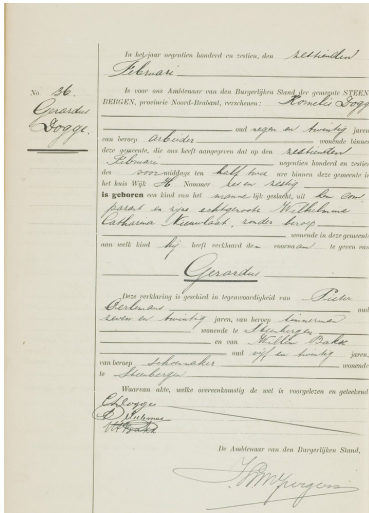 In het jaar negentien honderd en zestien, den zestienden
Februari
No 36.
Gerardus
Dogge.
In voor ons Ambtenaar van den Burgerlijken Stand der gemeente STEEN-
BERGEN, provincie Noord-Brabant, verschenen: Kornelis Dogge
oud negen en twintig jaren,
van beroep arbeider wonende binnen
deze gemeente, die ons heeft aangegeven dat op den zestienden
Februari negentien honderd en zestien
des voor middags ten half twee ure binnen deze gemeente in
het huis Wijk H Nommer zes en zestig
is geboren een kind van het mannelijk geslacht, uit hem com
parant en zijne echtgenoote Wilhelmina
Catharina Nieuwlaat, zonder beroep
wonende in deze gemeente
aan welk kind hij heeft verklaard den voornaam te geven van
Gerardus
Deze verklaring is geschied in tegenwoordigheid van Pieter
oud
zeven en twintig jaren, van beroep timmerman
wonende te Steenbergen
en van Willem Bakx
oud vijf en twintig jaren,
van beroep schoenmaker wonende
te Steenbergen
Waarvan akte, welke overeenkomstig de wet is voorgelezen en geteekend
C Dogge
De Ambtenaar van den Burgerlijken Stand,